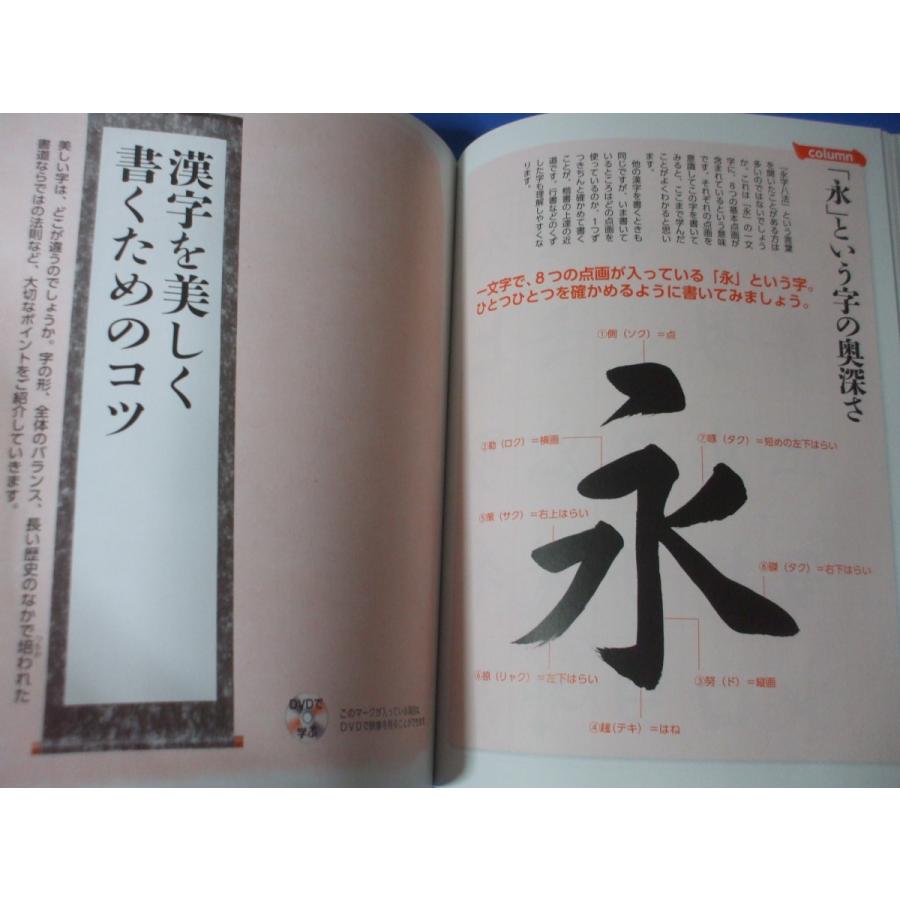 column
「永」という字の奥深さ
「永字八法」という言葉
を聞いたことがある方は
多いのではないでしょう
か。これは「永」の一文
字に、8つの基本点画が
含まれているという意味
です。それぞれの点画を
意識してこの字を書いて
みると、ここまで学んだ
ことがよくわかると思い
ます。
他の漢字を書くときも
同じですが、いま書いて
いるところはどの点画を
使っているのか、1つず
つきちんと確かめて書く
ことが、楷書の上達の近
道です。行書などのくず
した字も理解しやすくな
ります。
一文字で、8つの点画が入っている「永」という字。
ひとつひとつを確かめるように書いてみましょう。
①側（ソク）＝点
②勒（ロク）＝横画
⑦啄（タク）＝短めの左下はらい
⑤策（サク）＝右上はらい
⑧磔（タク）＝右下はらい
⑥掠（リャク）＝左下はらい
③努（ド）＝縦画
④趯（テキ）＝はね
永
漢字を美しく
書くためのコツ
美しい字は、どこが違うのでしょうか。字の形、全体のバランス、長い歴史のなかで培われた
書道ならではの法則など、大切なポイントをご紹介していきます。
DVDで
学ぶ
このマークが入っている項目は
DVDで映像を見ることができます